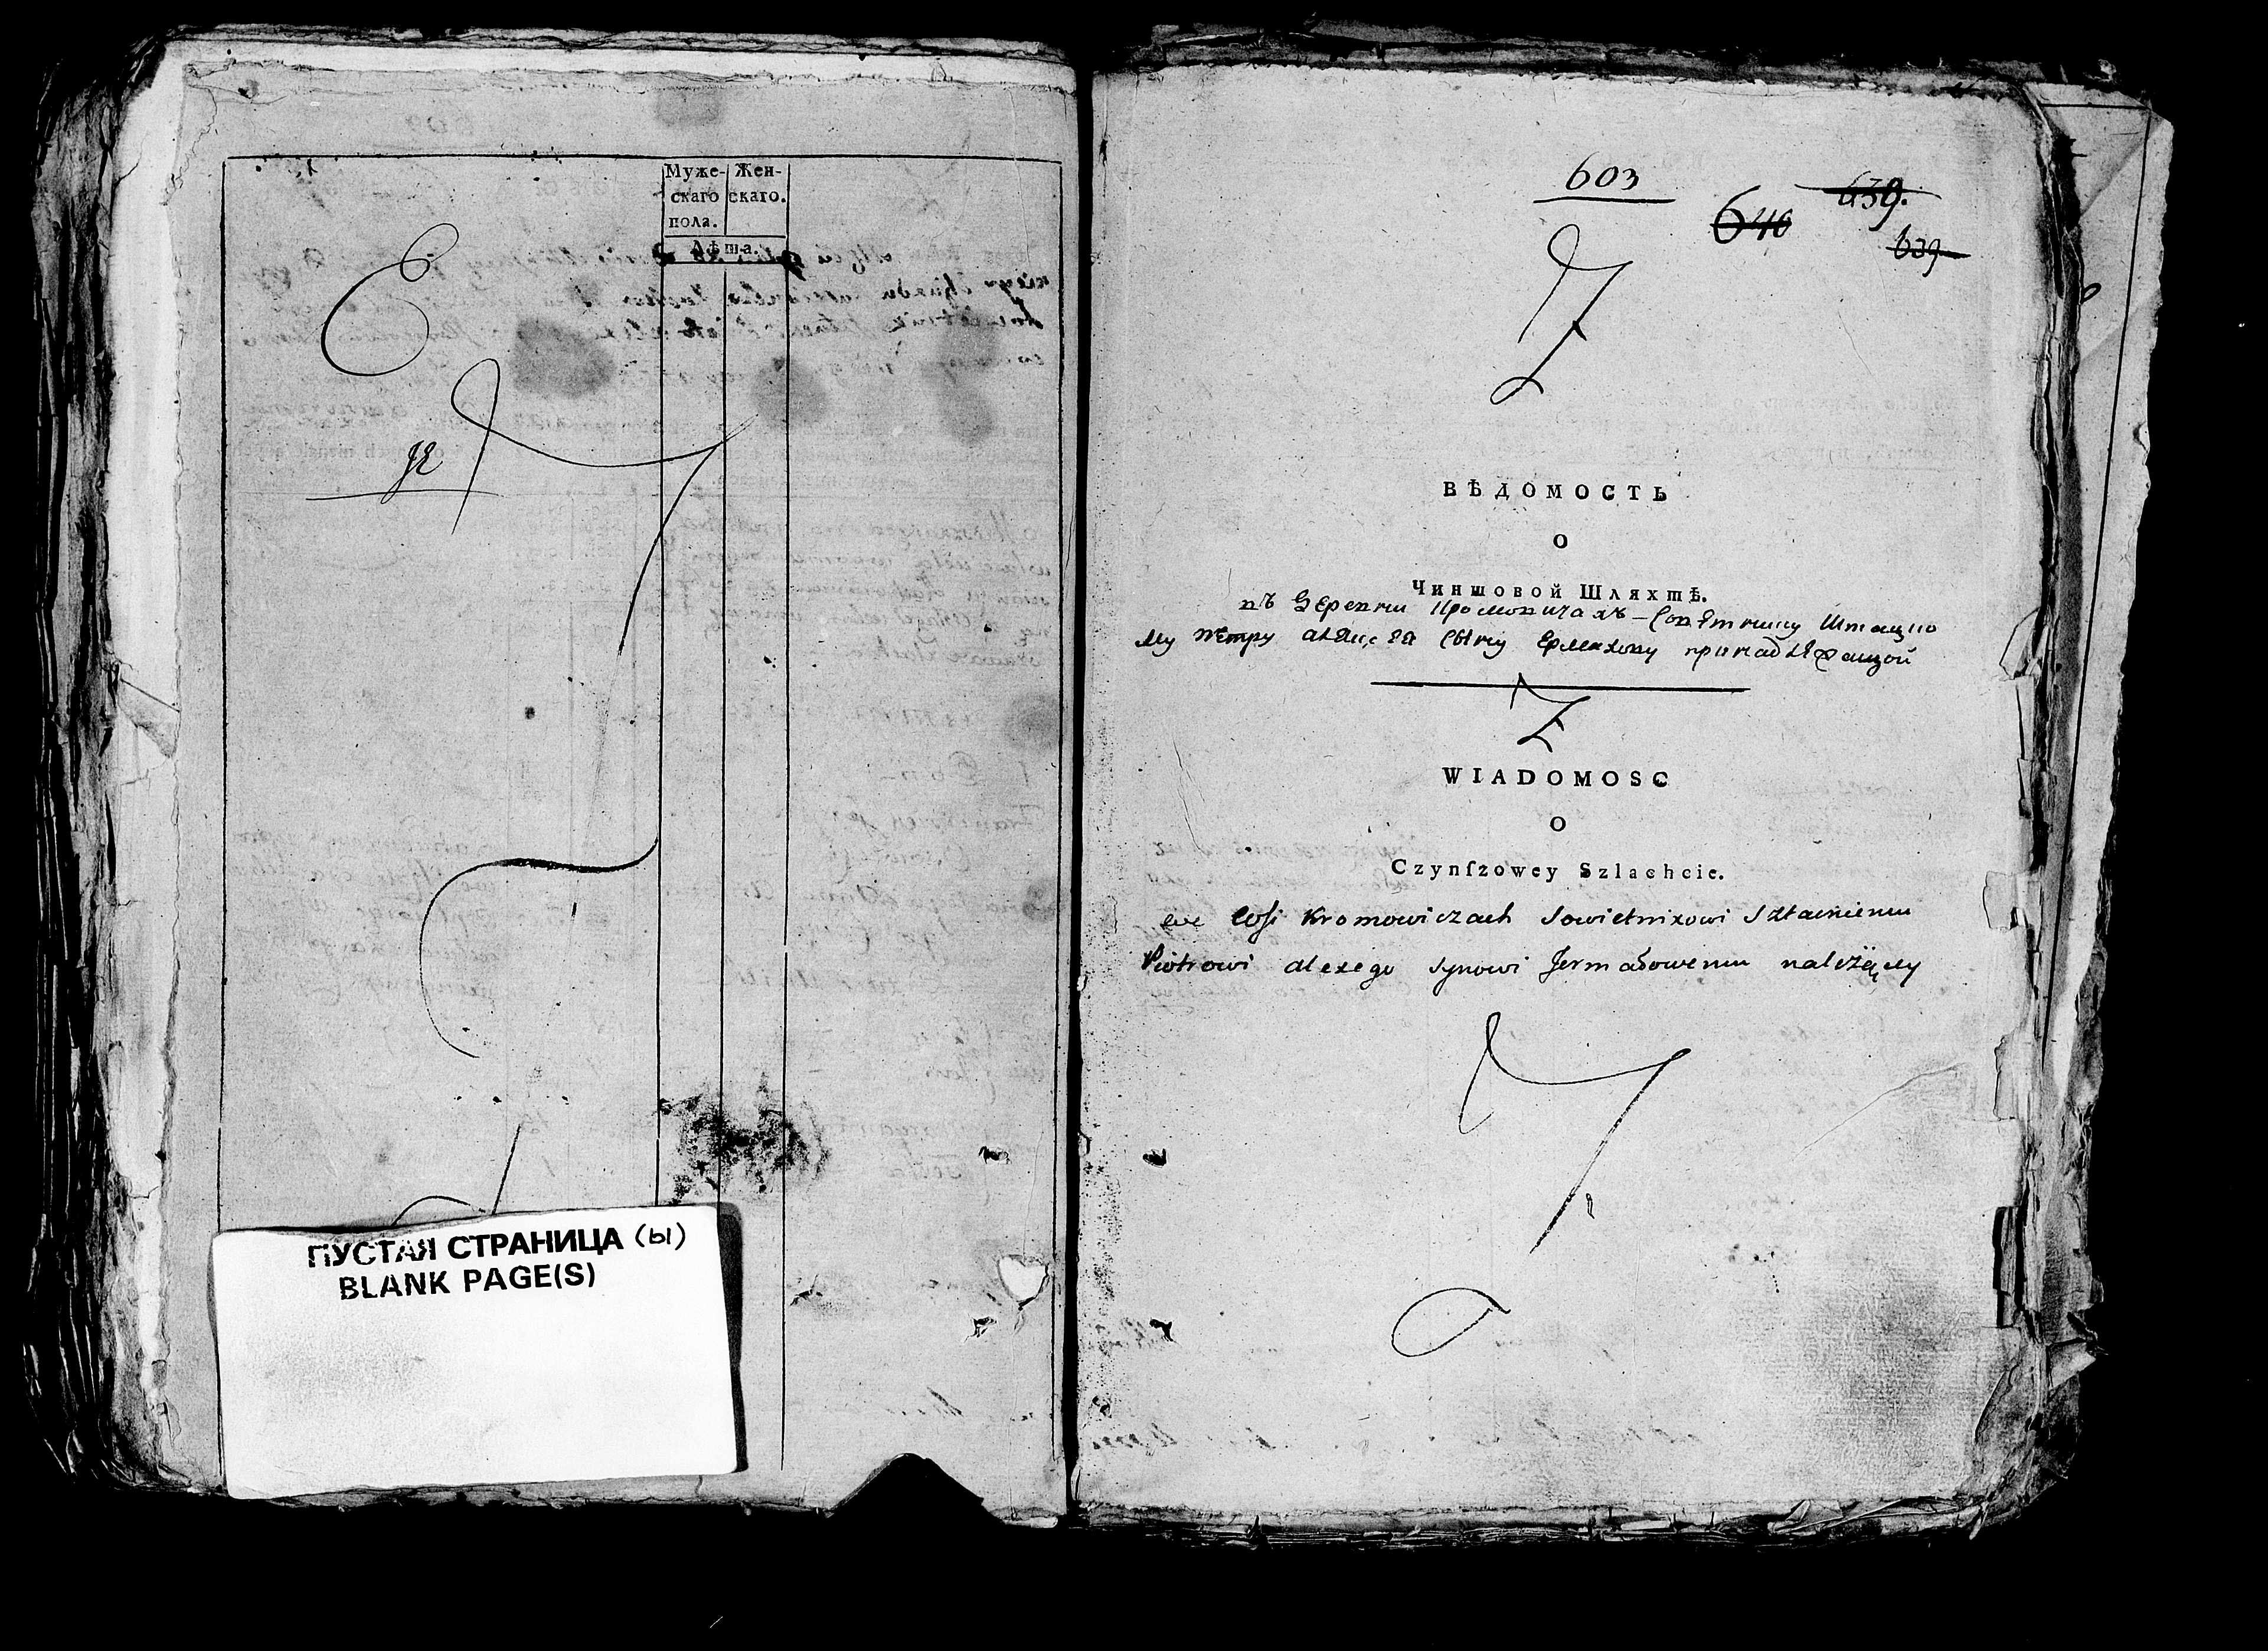 Муже- Жен-
скаго скаго.
пола.
Лѣта.
ПУСТАЯ СТРАНИЦА (ы)
BLANK PAGE(S)
603
640
639.
639
ВѢДОМОСТЬ
О
Чиншовой Шляхтѣ.
въ Деревни Кромовичахъ - Совѣтнику Штацко
му Петру Алексѣя Сыну Ермакову принадлежащой
WIADOMOSC
O
Czynſzowey Szlachcie.
we Wsi Kromowiczach Sowietnikowi Sztackiemu
Piotrowi Alexego Synowi Jermakowemu należący